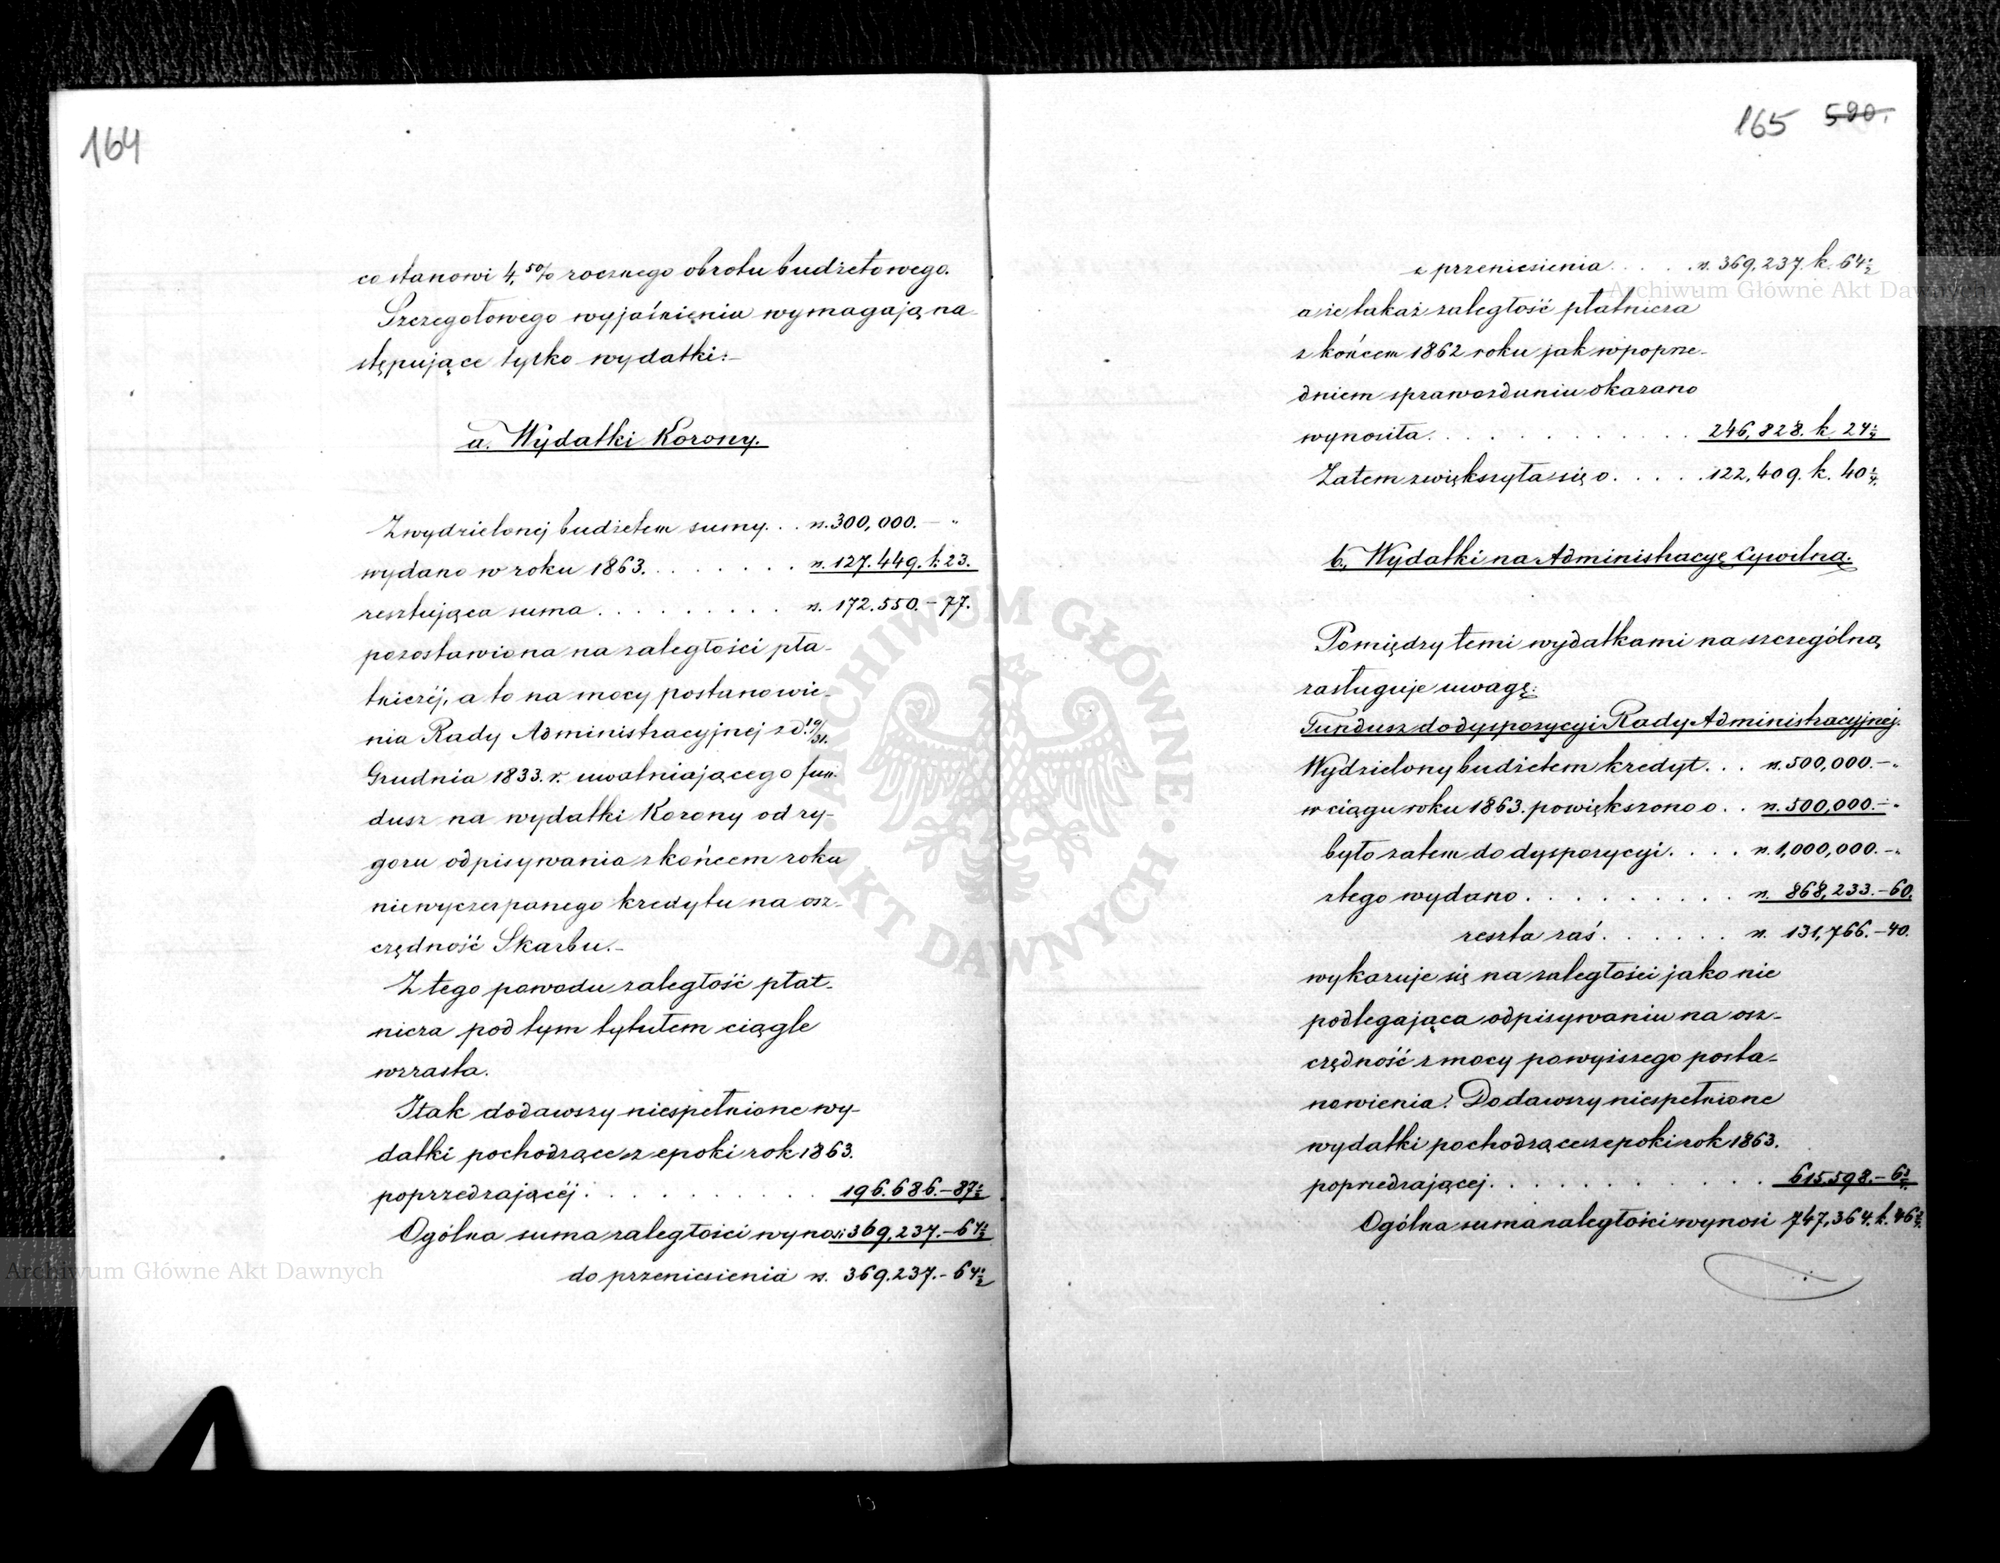 164
co stanowi 4,50% rocznego obrotu budżetowego.
Szczegołowego wyjaśnienia wymagają na-
stępujące tylko wydatki:-
a. Wydatki Korony.
Z wydzielonej budżetem sumy. . . rs. 300,000. — "
wydano w roku 1863. . . . . . . . rs. 127.449. k: 23.
resztująca suma . . . . . . . . . rs. 172.550. — 77.
pozostawiona na zaległości pła-
tniczéj, a to na mocy postanowie-
nia Rady Administracyjnej z d. 19/31.
Grudnia 1833. r. uwalniającego fun-
dusz na wydatki Korony od ry-
goru odpisywania z końcem roku
niewyczerpanego kredytu na osz-
czędność Skarbu.-
Z tego powodu zaległość płat-
nicza pod tym tytułem ciągle
wzrasta.
I tak dodawszy niespełnione wy-
datki pochodzące z epoki rok 1863.
poprzedzającéj . . . . . . . . . . 196.686. — 87½
Ogólna suma zaległości wynosi 369,237. — 64½
do przeniesienia rs. 369.237. — 64½
165 590.
z przeniesienia . . . . . rs. 369,237. k. 64½
a że takaż zaległość płatnicza
z końcem 1862 roku jak w poprze-
dniem sprawozdaniu okazano
wynosiła . . . . . . . . . . . . 246,828. k. 24¼
Zatem zwiększyła się o . . . . . 122,409. k. 40¼
b, Wydatki na Administracyę Cywilną.
Pomiędzy temi wydatkami na szczególną
zasługuje uwagę:
Fundusz do dyspozycyi Rady Administracyjnej.
Wydzielony budżetem kredyt . . . rs. 500,000. — "
w ciągu roku 1863. powiększono o . . rs. 500,000. — "
było zatem do dyspozycyi . . . . rs. 1,000,000. — "
z tego wydano . . . . . . . . . rs. 868,233. — 60.
reszta zaś . . . . . . rs. 131,766. — 40.
wykazuje się na zaległości jako nie
podlegająca odpisywaniu na osz-
czędność z mocy powyższego posta-
nowienia. Dodawszy niespełnione
wydatki pochodzące z epoki rok 1863.
poprzedzającej . . . . . . . . . . . 615,598. —
Ogólna suma zaległości wynosi 747,364. k.
Archiwum Główne Akt Dawnych
Archiwum Główne Akt Dawnych
ARCHIWUM GŁÓWNE · AKT DAWNYCH ·